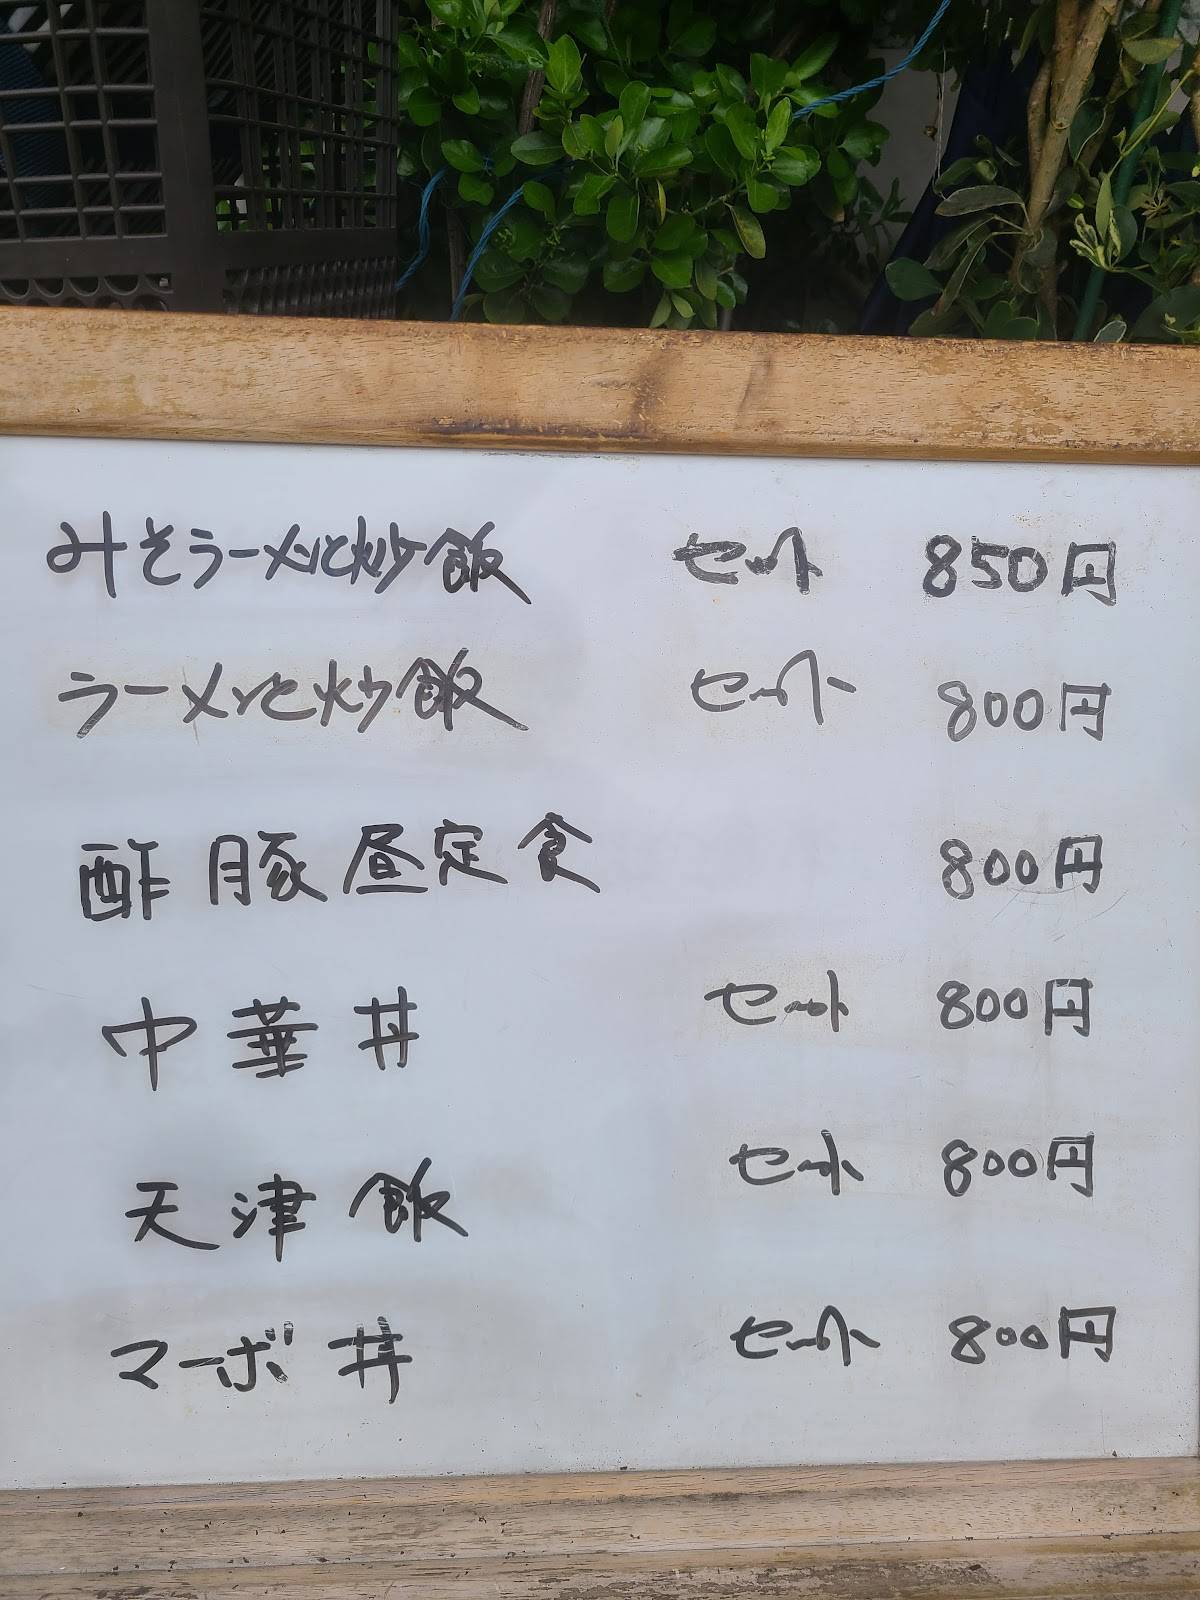 みそラーメンと炒飯 セット 850円
ラーメンと炒飯 セット 800円
酢豚昼定食 800円
中華丼 セット 800円
天津飯 セット 800円
マーボ丼 セット 800円